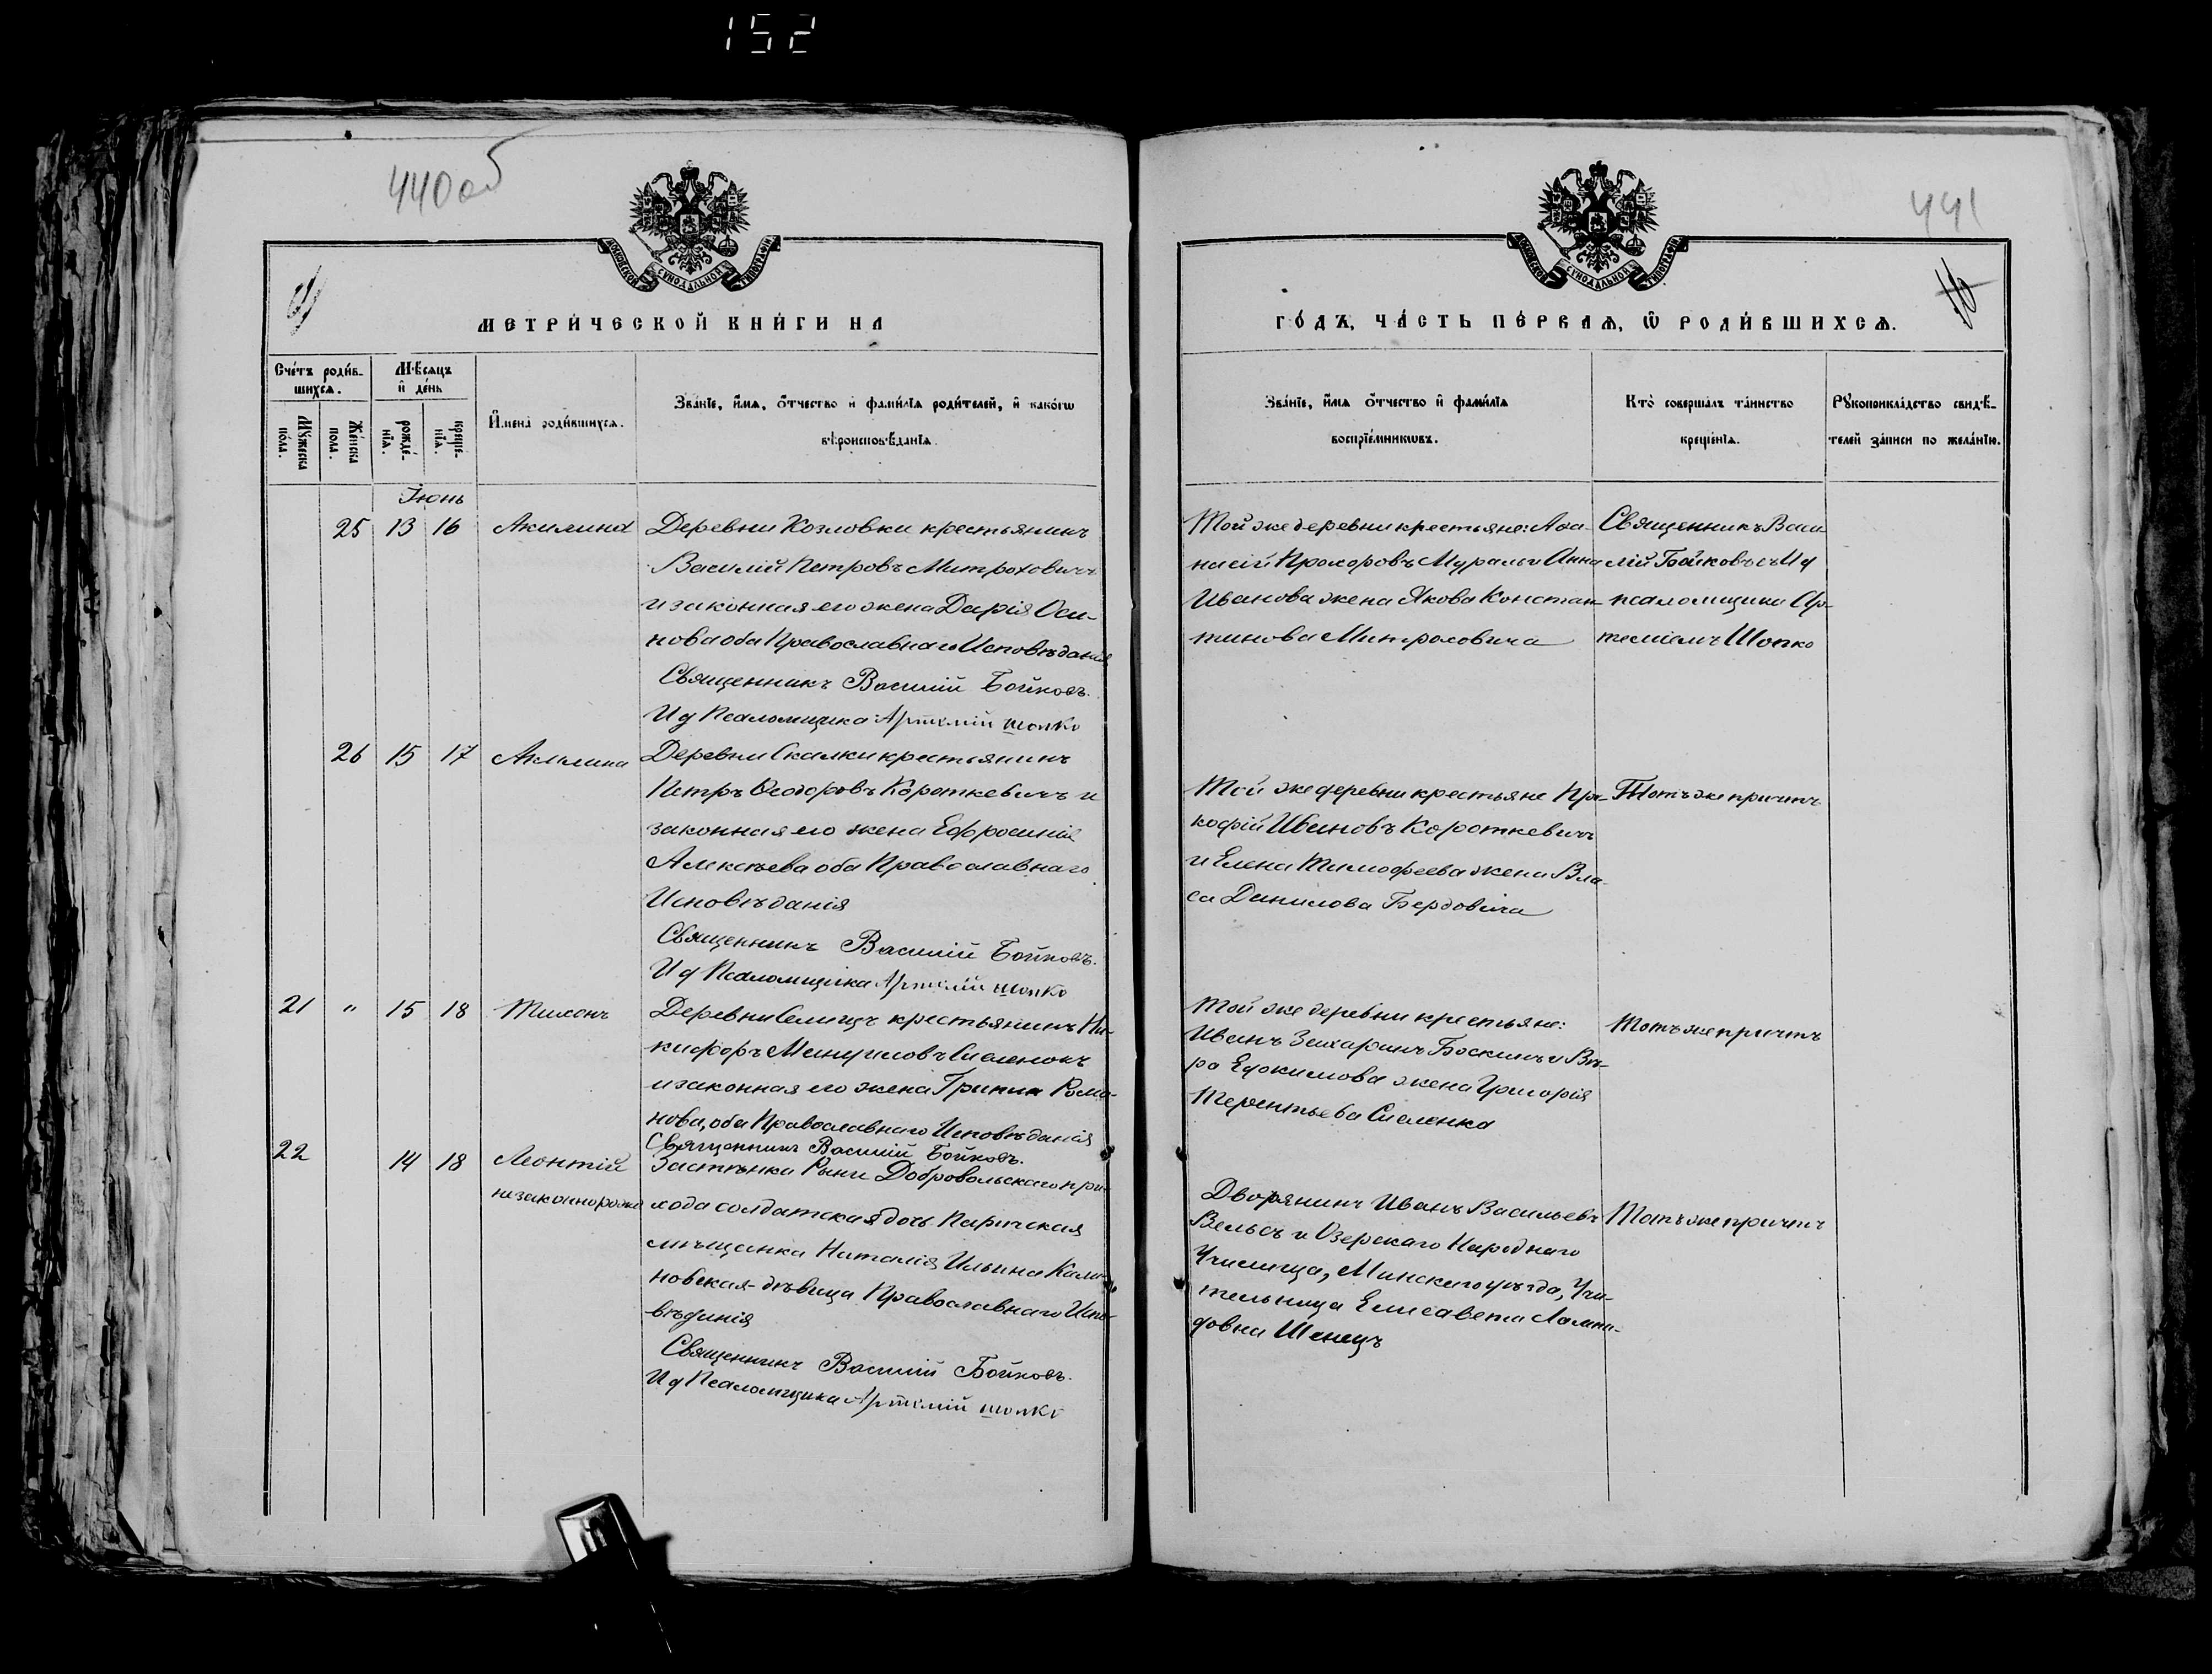 152
440об
441
16
МОСКОВСКОЙ СѴНОДАЛЬНОЙ ТИПОГРАФІИ
МОСКОВСКОЙ СѴНОДАЛЬНОЙ ТИПОГРАФІИ
МЕТРИ́ЧЕСКОЙ КНИ́ГИ НА
ГО́ДЪ, ЧА́СТЬ ПЕ́РВАѦ, Ѽ РОДИ́ВШИХСѦ.
Сче́тъ роди́в-
шихсѧ.
Мѣсѧцъ
и҆ де́нь
Мꙋ́жеска
по́ла.
Же́нска
пола.
рожде́-
нїѧ.
креще́-
нїѧ.
И҆мена̀ роди́вшихсѧ.
Зва́нїе, и҆́мѧ, ѻ҆́тчество и҆ фами́лїѧ роди́телей, и҆ како́гѡ
вѣроисповѣ́данїѧ.
Зва́нїе, и҆́мѧ ѻ҆́тчество и҆ фами́лїѧ
воспрїе́мникѡвъ.
Кто̀ соверша́лъ та́инство
креще́нїѧ.
Рꙋкоприкла́дство свидѣ́-
телей за́писи по жела́нїю.
Іюнь
25 13 16 Акилина
Деревни Козловки крестьянинъ
Василій Петровъ Митроховичъ
и законная его жена Дарія Оси-
пова оба Православнаго Исповѣданія
Священникъ Василій Бойковъ.
И д Псаломщика Артемій Шопко
Той же деревни крестьяне: Аѳа-
насій Прохоровъ Мураль и Анна
Иванова жена Якова Констан-
тинова Митроховича
Священникъ Васи-
лій Бойковъ съ И д
псаломщика Ар-
теміемъ Шопко
26 15 17 Акилина
Деревни Скалки крестьянинъ
Петръ Ѳеодоровъ Короткевичъ и
законная его жена Ефросинія
Алексѣева оба Православнаго
Исповѣданія
Священникъ Василій Бойковъ.
И д Псаломщика Артемій Шопко
Той же деревни крестьяне Про-
кофій Ивановъ Короткевичъ
и Елена Тимофеева жена Вла-
са Данилова Бердовича
Тотъ же причтъ
21 " 15 18 Тихонъ
Деревни Селищъ крестьянинъ Ни-
кифоръ Мануиловъ Сиеленокъ
и законная его жена Грипина Рома-
нова, оба Православнаго Исповѣданія
Священникъ Василій Бойковъ.
Той же деревни крестьяне:
Иванъ Захаринъ Боскинъ и Вѣ-
ра Евдокимова жена Григорія
Терентьева Сиеленка
Тотъ же причтъ
22 14 18 Леонтій
незаконнорожд
Застѣнка Рыни Добровольскаго при-
хода солдатская дочь Паричская
мѣщанка Наталія Ильина Кали-
новская дѣвица Православнаго Испо-
вѣданія
Священникъ Василій Бойковъ.
И д Псаломщика Артемій Шопко
Дворянинъ Иванъ Васильевъ
Вельсъ и Озерскаго Народнаго
Училища, Минскаго уѣзда, Учи-
тельница Елисавета
довна Шенецъ
Тотъ же причтъ